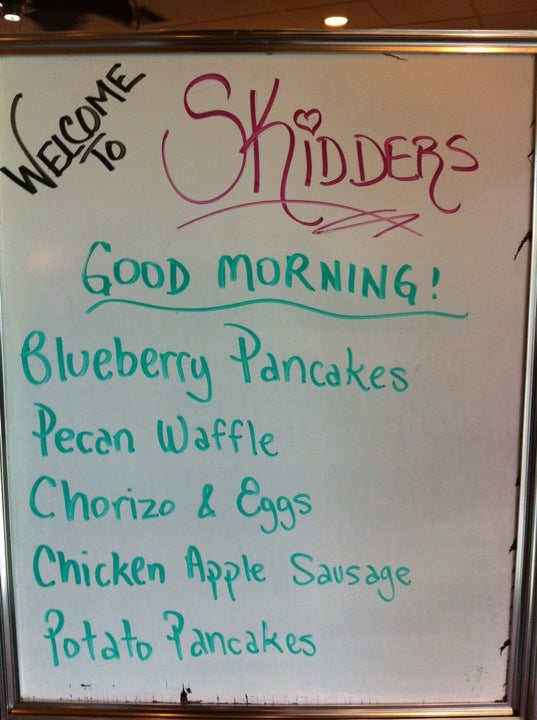 WELCOME
TO
SKiDDERS
GOOD MORNING!
Blueberry Pancakes
Pecan Waffle
Chorizo & Eggs
Chicken Apple Sausage
Potato Pancakes